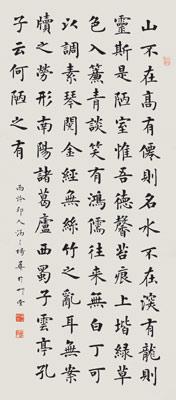 山不在高有僊則名水不在深有龍則
靈斯是陋室惟吾德馨苔痕上堦綠草
色入簾青談笑有鴻儒往來無白丁可
以調素琴閱金經無絲竹之亂耳無案
牘之勞形南陽諸葛廬西蜀子雲亭孔
子云何陋之有